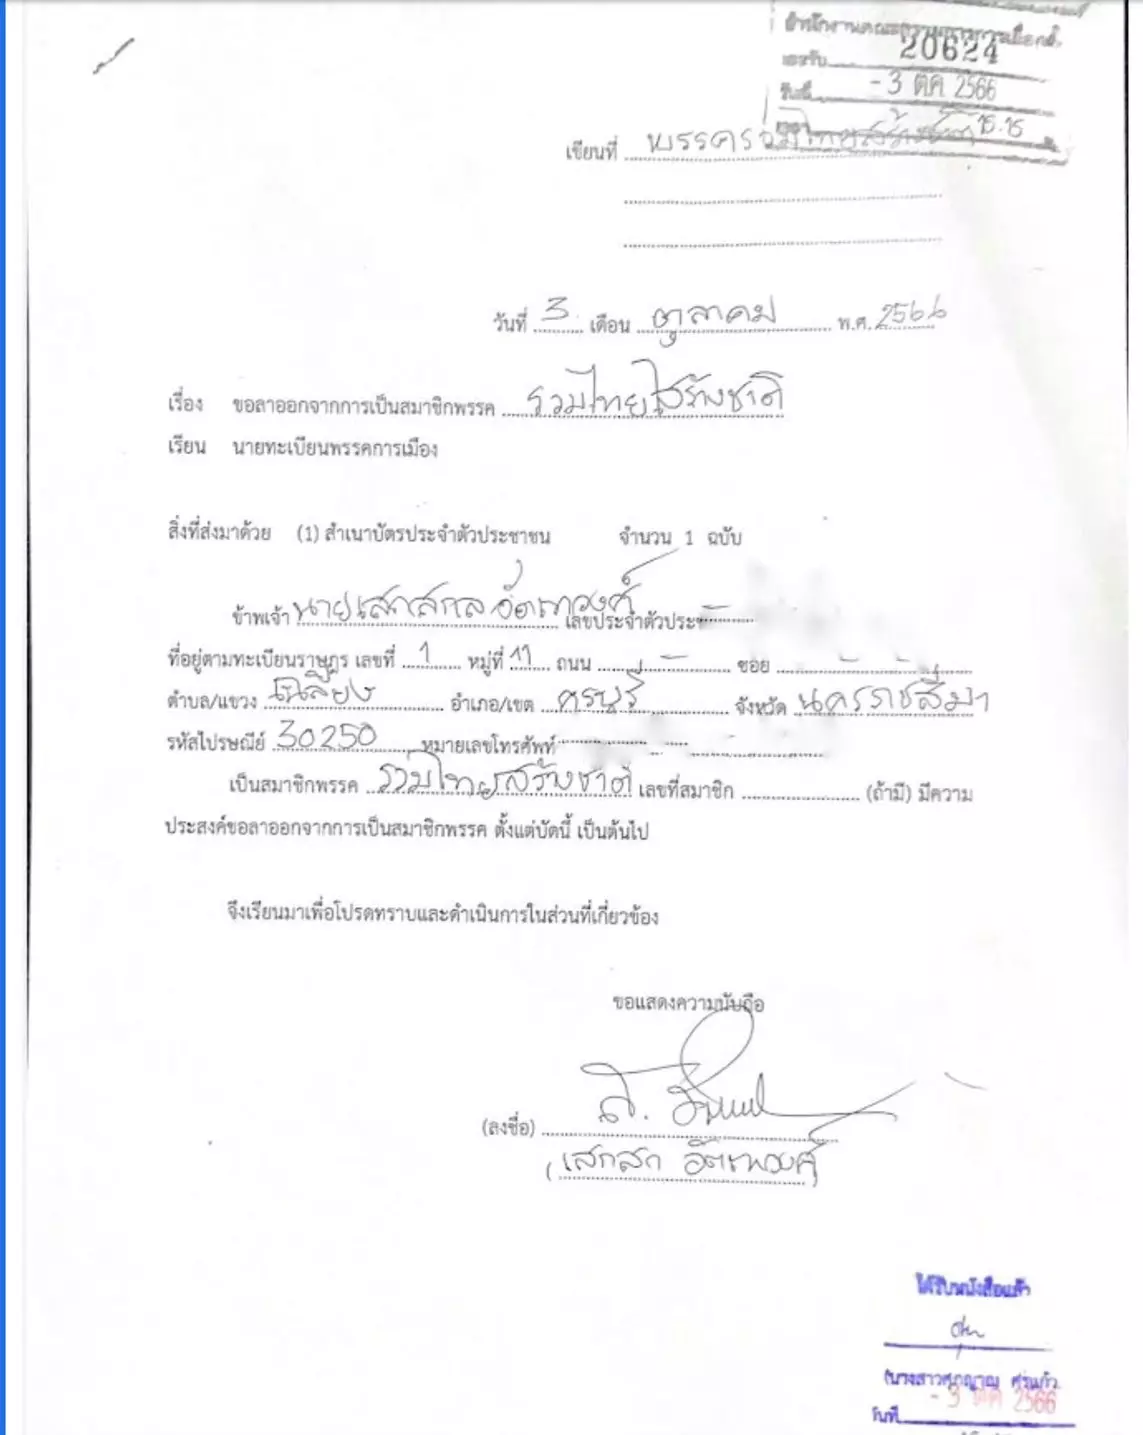 สำนักงานคณะกรรมการการเลือกตั้ง
เลขรับ 20624
วันที่ - 3 ตค 2566
15.15
เขียนที่ พรรครวมไทยสร้างชาติ
วันที่ 3 เดือน ตุลาคม พ.ศ. 2566
เรื่อง ขอลาออกจากการเป็นสมาชิกพรรค รวมไทยสร้างชาติ
เรียน นายทะเบียนพรรคการเมือง
สิ่งที่ส่งมาด้วย (1) สำเนาบัตรประจำตัวประชาชน จำนวน 1 ฉบับ
ข้าพเจ้า นายเสกสกล อัตถาวงศ์ เลขประจำตัวประช
ที่อยู่ตามทะเบียนราษฎร เลขที่ 1 หมู่ที่ 11 ถนน - ซอย
ตำบล/แขวง เฉลียง อำเภอ/เขต ครบุรี จังหวัด นครราชสีมา
รหัสไปรษณีย์ 30250 หมายเลขโทรศัพท์
เป็นสมาชิกพรรค รวมไทยสร้างชาติ เลขที่สมาชิก (ถ้ามี) มีความ
ประสงค์ขอลาออกจากการเป็นสมาชิกพรรค ตั้งแต่บัดนี้ เป็นต้นไป
จึงเรียนมาเพื่อโปรดทราบและดำเนินการในส่วนที่เกี่ยวข้อง
ขอแสดงความนับถือ
(ลงชื่อ)
(เสกสกล อัตถาวงศ์)
ได้รับหนังสือแล้ว
(นางสาวศุภญาณ
วันที่ - 3 ตค 2566